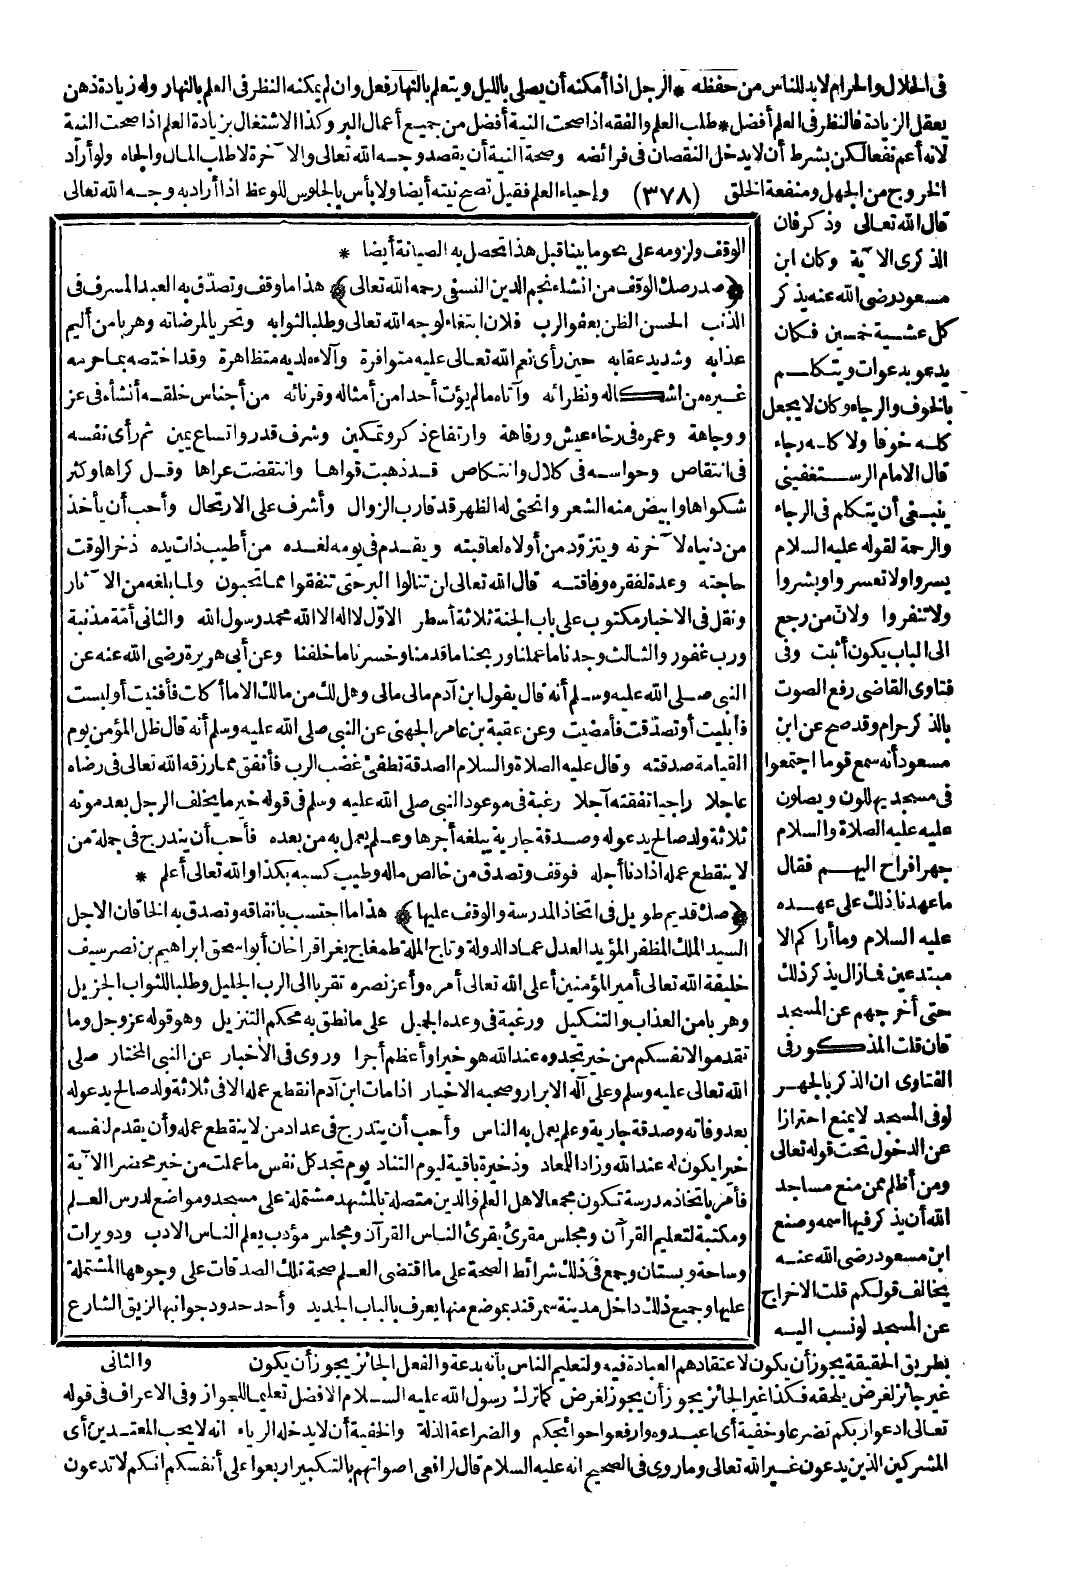 فى الحلال والحرام لا بد للناس من حفظه * الرجل اذا أمكنه أن يصلى بالليل ويتعلم بالنهار فعل وان لم يمكنه النظر فى العلم بالنهار وله زيادة ذهن
يعقل الزيادة فالنظر فى العلم أفضل * طلب العلم والفقه اذا صحت النية أفضل من جميع أعمال البر وكذا الاشتغال بزيادة العلم اذا صحت النية
لانه أعم نفعا لكن بشرط أن لا يدخل النقصان فى فرائضه وصحة النية أن يقصد وجه الله تعالى والآخرة لا طلب المال والجاه ولو أراد
الخروج من الجهل ومنفعة الخلق (٣٧٨) وإحياء العلم فقيل تصح نيته أيضا ولا بأس بالجلوس للوعظ اذا أراد به وجه الله تعالى
قال الله تعالى وذكر فان
الذكرى الآية وكان ابن
مسعود رضى الله عنه يذكر
كل عشية خميس فكان
يدعو بدعوات ويتكلم
بالخوف والرجاء وكان لا يجعل
كله خوفا ولا كله رجاء
قال الامام الرستغفينى
ينبغى أن يتكلم فى الرجاء
والرحمة لقوله عليه السلام
يسروا ولا تعسروا وبشروا
ولا تنفروا ولان من رجع
الى الباب يكون أثبت وفى
فتاوى القاضى رفع الصوت
بالذكر حرام وقد صح عن ابن
مسعود أنه سمع قوما اجتمعوا
فى مسجد يهللون ويصلون
عليه عليه الصلاة والسلام
جهرا فراح اليهم فقال
ما عهدنا ذلك على عهده
عليه السلام وما أراكم الا
مبتدعين فما زال يذكر ذلك
حتى أخرجهم عن المسجد
فان قلت المذكور فى
الفتاوى ان الذكر بالجهر
لو فى المسجد لا يمنع احترازا
عن الدخول تحت قوله تعالى
ومن أظلم ممن منع مساجد
الله أن يذكر فيها اسمه وصنع
ابن مسعود رضى الله عنه
يخالف قولكم قلت الاخراج
عن المسجد لو نسب اليه
الوقف ولزومه على نحو ما بينا قبل هذا تحصل به الصيانة أيضا *
﴿صدر صك الوقف من انشاء نجم الدين النسفى رحمه الله تعالى﴾ هذا ما وقف وتصدق به العبد المسرف فى
الذنب الحسن الظن بعفو الرب فلان ابتغاء لوجه الله تعالى وطلبا لثوابه وتحريا لمرضاته وهربا من أليم
عذابه وشديد عقابه حين رأى نعم الله تعالى عليه متوافرة وآلاءه لديه متظاهرة وقد اختصه بما حرمه
غيره من اشكاله ونظرائه وآتاه ما لم يؤت أحدا من أمثاله وقرنائه من أجناس خلقه أنشأه فى عز
ووجاهة وعمره فى رخاء عيش ورفاهة وارتفاع ذكر وتمكين وشرف قدر واتساع يمين ثم رأى نفسه
فى انتقاص وحواسه فى كلال وانتكاص قد ذهبت قواها وانتقضت عراها وقل كراها وكثر
شكواها وابيض منه الشعر وانحنى له الظهر قد قارب الزوال وأشرف على الارتحال وأحب أن يأخذ
من دنياه لآخرته ويتزود من أولاه لعاقبته ويقدم فى يومه لغده من أطيب ذات يده ذخر الوقت
حاجته وعدة لفقره وفاقته قال الله تعالى لن تنالوا البر حتى تنفقوا مما تحبون ولما بلغه من الآثار
ونقل فى الاخبار مكتوب على باب الجنة ثلاثة أسطر الاول لا اله الا الله محمد رسول الله والثانى أمة مذنبة
ورب غفور والثالث وجدنا ما عملنا وربحنا ما قدمنا وخسرنا ما خلفنا وعن أبى هريرة رضى الله عنه عن
النبى صلى الله عليه وسلم أنه قال يقول ابن آدم مالى مالى وهل لك من مالك الا ما أكلت فأفنيت أو لبست
فأبليت أو تصدقت فأمضيت وعن عقبة بن عامر الجهنى عن النبى صلى الله عليه وسلم أنه قال ظل المؤمن يوم
القيامة صدقته وقال عليه الصلاة والسلام الصدقة تطفئ غضب الرب فأنفق مما رزقه الله تعالى فى رضاه
عاجلا راجيا نفقته آجلا رغبة فى موعود النبى صلى الله عليه وسلم فى قوله خير ما يخلف الرجل بعد موته
ثلاثة ولد صالح يدعو له وصدقة جارية يبلغه أجرها وعلم يعمل به من بعده فأحب أن يندرج فى جملة من
لا ينقطع عمله اذا دنا أجله فوقف وتصدق من خالص ماله وطيب كسبه بكذا والله تعالى أعلم *
﴿صك قديم طويل فى اتخاذ المدرسة والوقف عليها﴾ هذا ما احتسب باتفاقه وتصدق به الخاقان الاجل
السيد الملك المظفر المؤيد العدل عماد الدولة وتاج الملة طمغاج بغراقراخان أبو اسحق ابراهيم بن نصر سيف
خليفة الله تعالى أمير المؤمنين أعلى الله تعالى أمره وأعز نصره تقربا الى الرب الجليل وطلبا للثواب الجزيل
وهربا من العذاب والتنكيل ورغبة فى وعده الجميل على ما نطق به محكم التنزيل وهو قوله عز وجل وما
تقدموا لانفسكم من خير تجدوه عند الله هو خيرا وأعظم أجرا وروى فى الأخبار عن النبى المختار صلى
الله تعالى عليه وسلم وعلى آله الابرار وصحبه الاخيار اذا مات ابن آدم انقطع عمله الا فى ثلاثة ولد صالح يدعو له
بعد وفاته وصدقة جارية وعلم يعمل به الناس وأحب أن يندرج فى عداد من لا ينقطع عمله وأن يقدم لنفسه
خيرا يكون له عند الله وزاد اللمعاد وذخيرة باقية ليوم التناد يوم تجد كل نفس ما عملت من خير محضرا الآية
فأمر باتخاذه مدرسة تكون مجمعا لاهل العلم والدين متصلة بالمشهد مشتملة على مسجد ومواضع لدرس العلم
ومكتبة لتعليم القرآن ومجلس مقرئ يقرئ الناس القرآن ومجلس مؤدب يعلم الناس الادب ودويرات
وساحة وبستان وجمع فى ذلك شرائط الصحة على ما اقتضى العلم صحة تلك الصدقات على وجوهها المشتملة
عليها وجميع ذلك داخل مدينة سمرقند بموضع منها يعرف بالباب الجديد وأحد حدود جوانبها الزيق الشارع
بطريق الحقيقة يجوز أن يكون لاعتقادهم العبادة فيه ولتعليم الناس بأنه بدعة والفعل الجائز يجوز أن يكون والثانى
غير جائز لغرض يلحقه فكذا غير الجائز يجوز أن يجوز لغرض كما ترك رسول الله عليه السلام الافضل تعليما للجواز وفى الاعراف فى قوله
تعالى ادعوا ربكم تضرعا وخفية أى اعبدوه وارفعوا حوائجكم والضراعة الذلة والخفية أن لا يدخله الرياء انه لا يحب المعتدين أى
المشركين الذين يدعون غير الله تعالى وما روى فى الصحيح انه عليه السلام قال لرافعى اصواتهم بالتكبير اربعوا على أنفسكم انكم لا تدعون